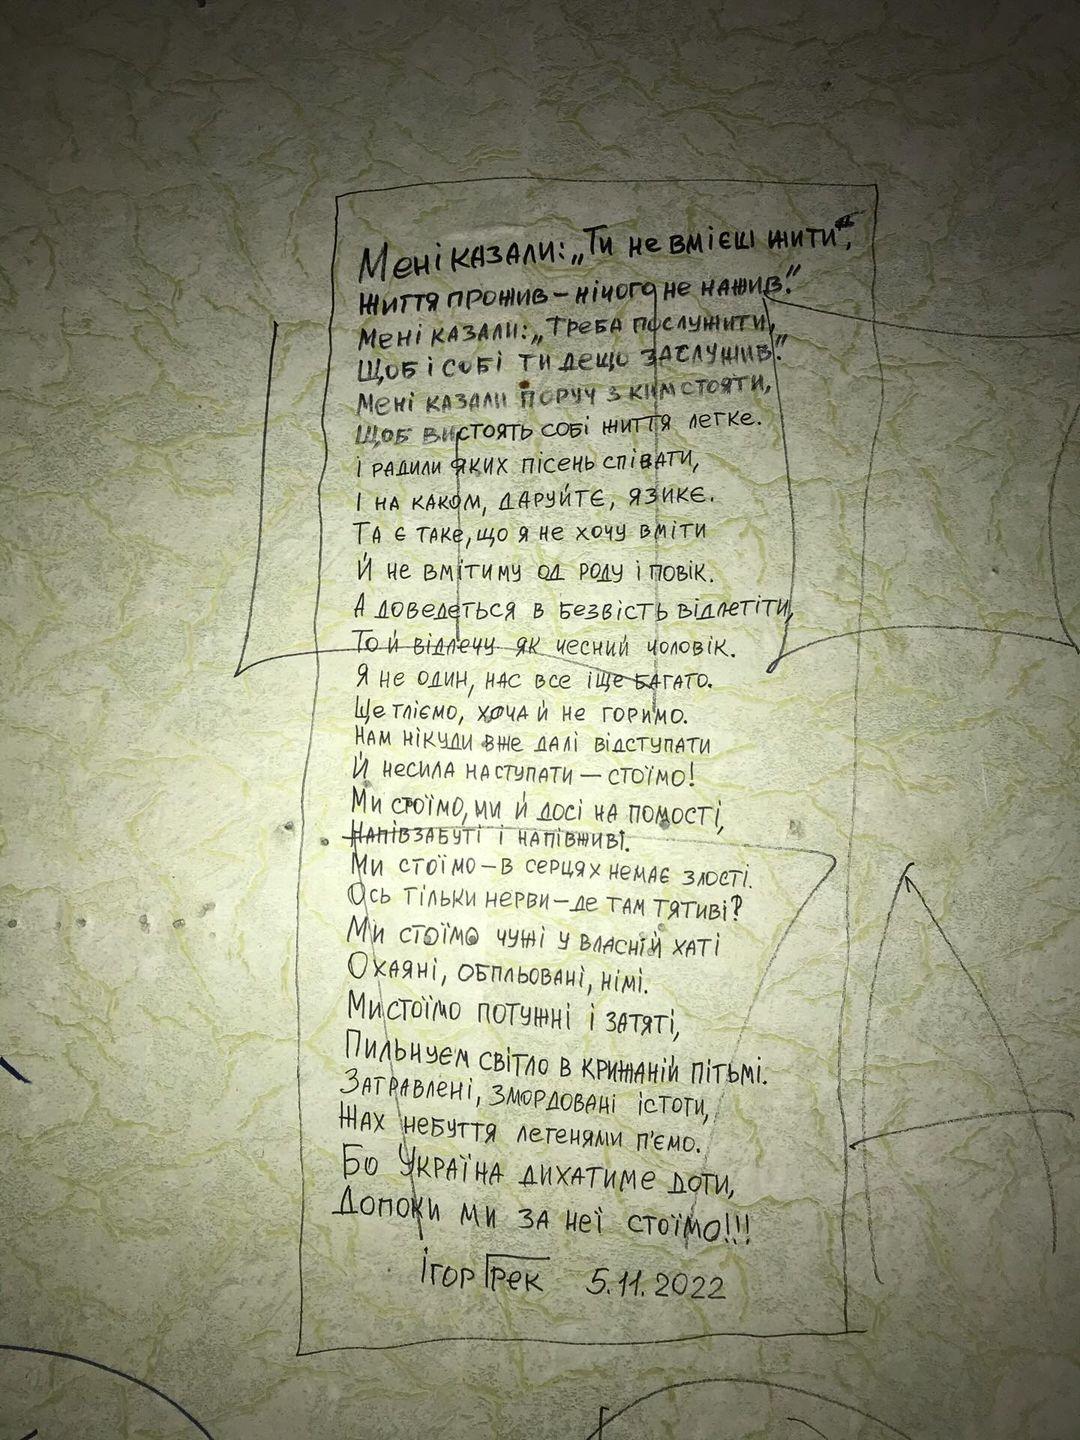 Мені казали: „Ти не вмієш жити",
Життя прожив – нічого не нажив."
Мені казали: „Треба послужити,
Щоб і собі ти дещо заслужив."
Мені казали поруч з ким стояти,
Щоб вистоять собі життя легке.
І радили яких пісень співати,
І на каком, даруйтє, язикє.
Та є таке, що я не хочу вміти
Й не вмітиму од роду і повік.
А доведеться в безвість відлетіти,
То й відлечу як чесний чоловік.
Я не один, нас все іще багато.
Ще тліємо, хоча й не горимо.
Нам нікуди вже далі відступати
Й несила наступати – стоїмо!
Ми стоїмо, ми й досі на помості,
Напівзабуті і напівживі.
Ми стоїмо – в серцях немає злості.
Ось тільки нерви – де там тятиві?
Ми стоїмо чужі у власній хаті
Охаяні, обпльовані, німі.
Ми стоїмо потужні і затяті,
Пильнуєм світло в крижаній пітьмі.
Затравлені, змордовані істоти,
Жах небуття легенями п'ємо.
Бо Україна дихатиме доти,
Допоки ми за неї стоїмо!!!
Ігор Грек 5.11.2022